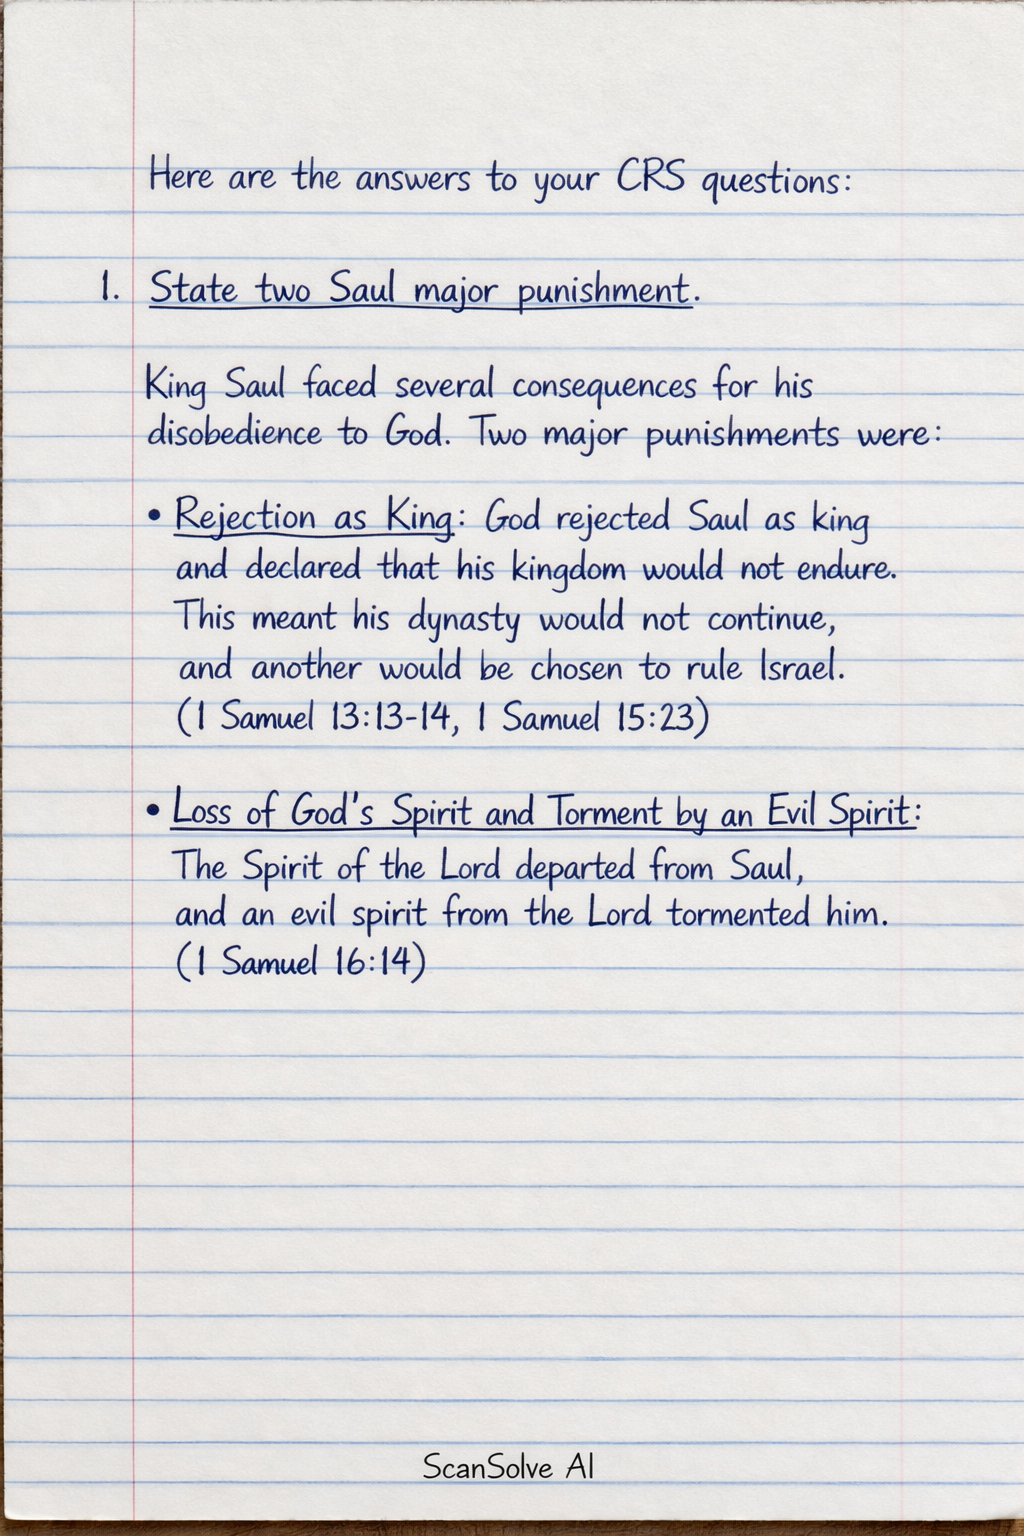 Here are the answers to your CRS questions:
1. State two Saul major punishment.
King Saul faced several consequences for his
disobedience to God. Two major punishments were:
• Rejection as King: God rejected Saul as king
and declared that his kingdom would not endure.
This meant his dynasty would not continue,
and another would be chosen to rule Israel.
(1 Samuel 13:13-14, 1 Samuel 15:23)
• Loss of God's Spirit and Torment by an Evil Spirit:
The Spirit of the Lord departed from Saul,
and an evil spirit from the Lord tormented him.
(1 Samuel 16:14)
ScanSolve AI